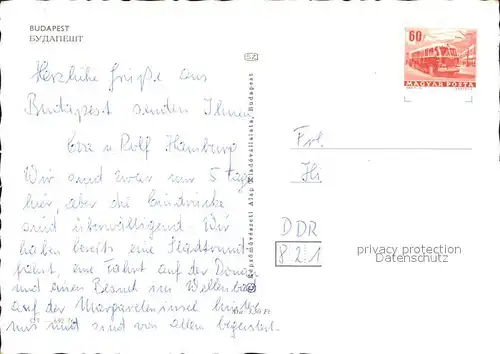 BUDAPEST
БУДАПЕШТ
60
MAGYAR POSTA
Herzliche Grüße aus
Budapest senden Ihnen
Eva u Rolf Hamburg
Wir sind zwar nur 5 Tage
hier, aber die Eindrücke
sind überwältigend. Wir
haben bereits eine Stadtrund-
fahrt, eine Fahrt auf der Donau
und einen Besuch im Wellenbad
auf der Margareteninsel hinter
uns und sind von allem begeistert.
Képzőművészeti Alap Kiadóvállalata, Budapest
Frl.
DDR
821
privacy protection
Datenschutz